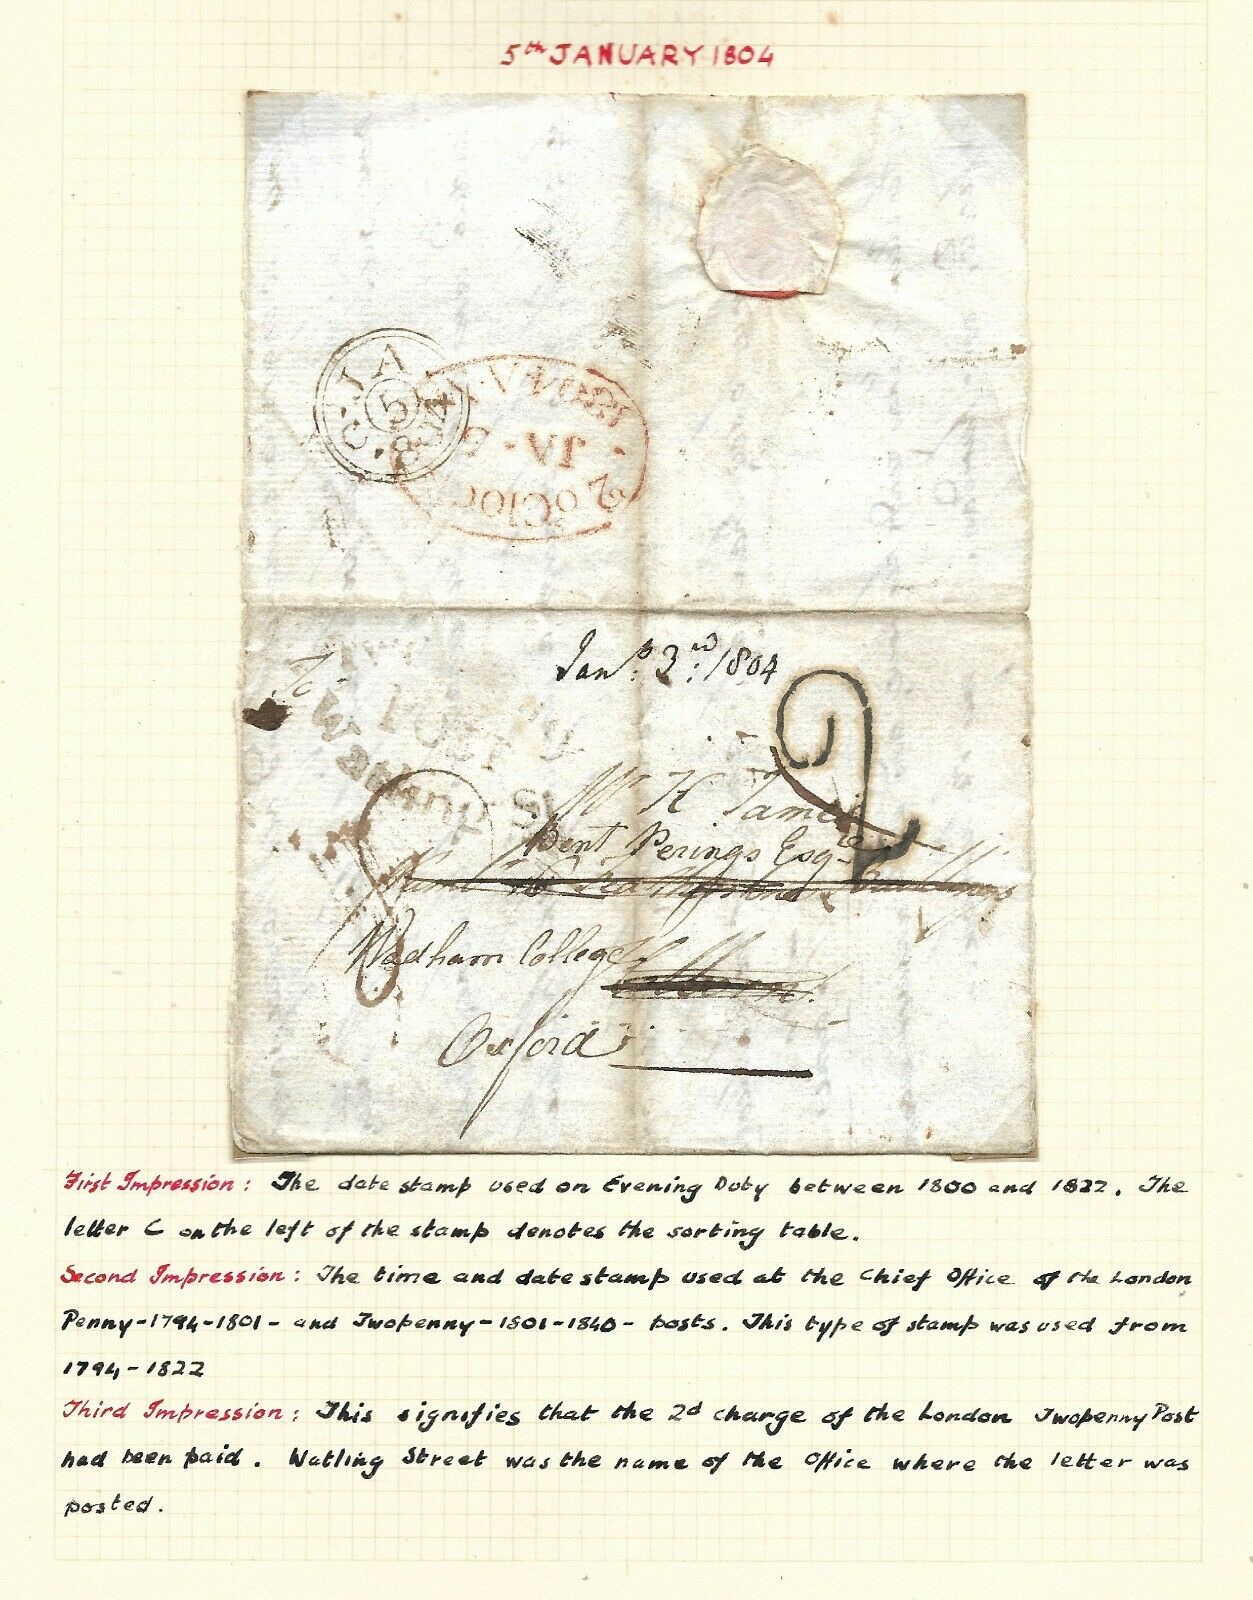 5th JANUARY 1804
C · JA
5
804
1804
JA · 5
2 oClock
Jany. 3rd: 1804
To
2
Post
Watling St
Mr H Tame
Bent Perings Esqre
Wadham College
Oxford
First Impression: The date stamp used on Evening Duty between 1800 and 1822. The
letter C on the left of the stamp denotes the sorting table.
Second Impression: The time and date stamp used at the Chief Office of the London
Penny-1794-1801- and Twopenny-1801-1840- posts. This type of stamp was used from
1794-1822
Third Impression: This signifies that the 2d charge of the London Twopenny Post
had been paid. Watling Street was the name of the Office where the letter was
posted.